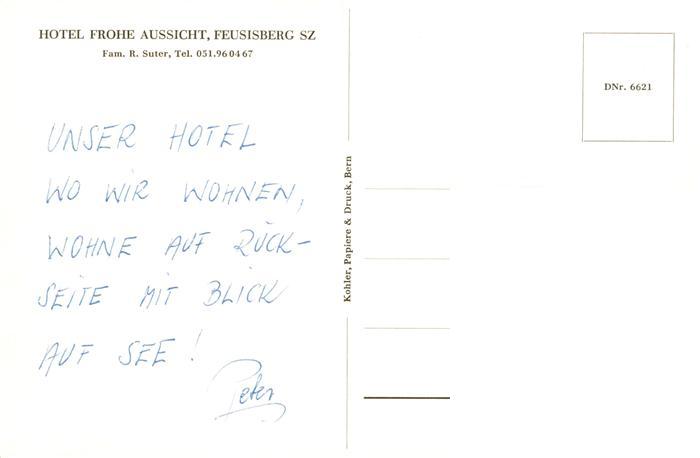 HOTEL FROHE AUSSICHT, FEUSISBERG SZ
Fam. R. Suter, Tel. 051.96 04 67
UNSER HOTEL
WO WIR WOHNEN,
WOHNE AUF RÜCK-
SEITE MIT BLICK
AUF SEE !
Peter
Kohler, Papiere & Druck, Bern
DNr. 6621